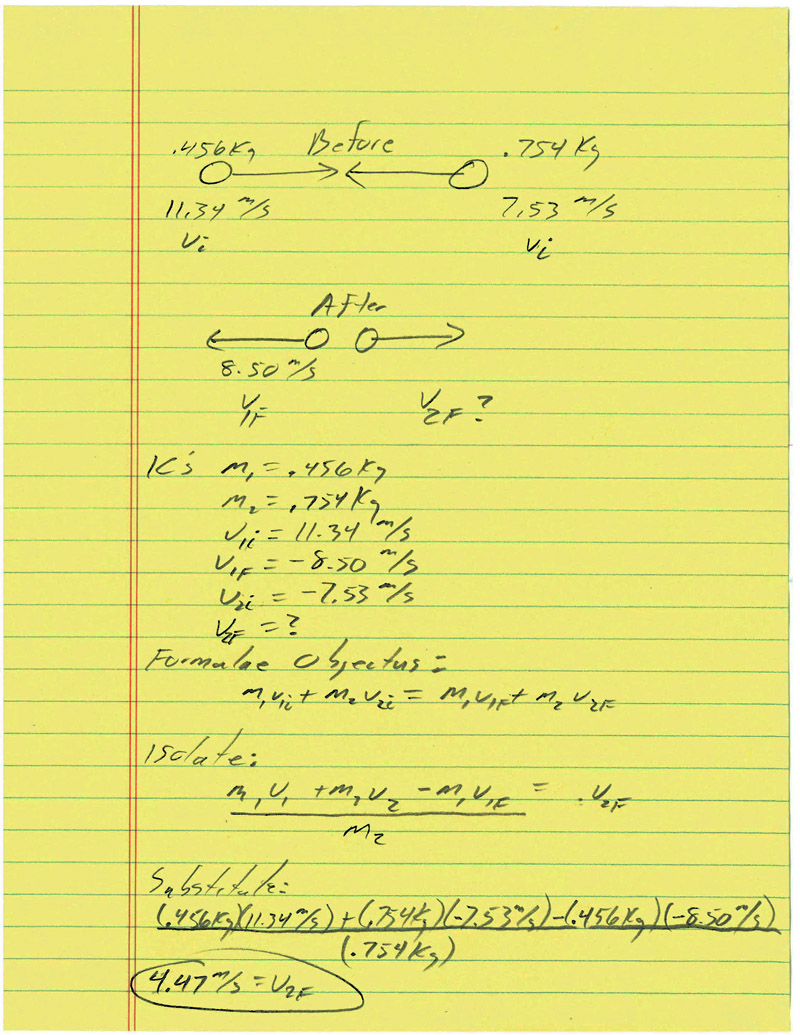 .456Kg Before .754 Kg
11.34 m/s 7.53 m/s
Vi Vi
After
8.50 m/s
V1F V2F ?
IC's m1 = .456 Kg
m2 = .754 Kg
V1i = 11.34 m/s
V1F = -8.50 m/s
V2i = -7.53 m/s
V2F = ?
Formulae Objectus:
m1V1i + m2V2i = m1V1F + m2V2F
Isolate:
m1V1 + m2V2 - m1V1F = V2F
m2
Substitute:
(.456Kg)(11.34m/s) + (.754Kg)(-7.53m/s) - (.456Kg)(-8.50m/s)
(.754Kg)
4.47 m/s = V2F